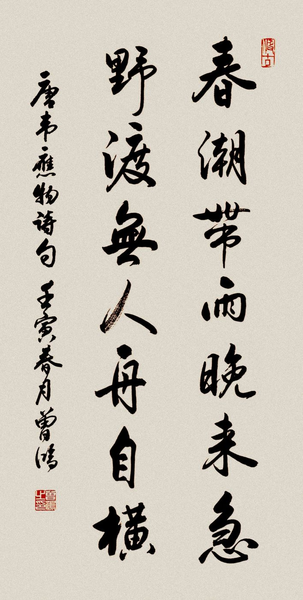 春潮带雨晚来急
野渡無人舟自横
唐韦應物詩句 壬寅春月曾鴻